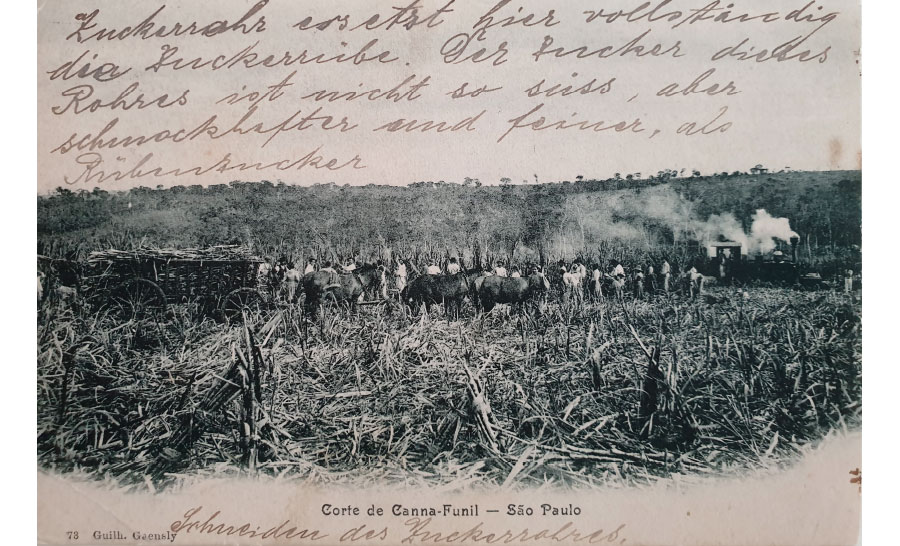 Zuckerrohr ersetzt hier vollständig
die Zuckerrübe. Der Zucker dieses
Rohres ist nicht so süss, aber
schmackhafter und feiner, als
Rübenzucker
Corte de Canna-Funil — São Paulo
73 Guilh. Gaensly
Schneiden des Zuckerrohres.